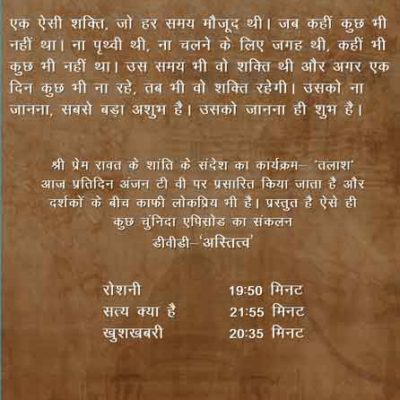 एक ऐसी शक्ति, जो हर समय मौजूद थी। जब कहीं कुछ भी
नहीं था। ना पृथ्वी थी, ना चलने के लिए जगह थी, कहीं भी
कुछ भी नहीं था। उस समय भी वो शक्ति थी और अगर एक
दिन कुछ भी ना रहे, तब भी वो शक्ति रहेगी। उसको ना
जानना, सबसे बड़ा अशुभ है। उसको जानना ही शुभ है।
श्री प्रेम रावत के शांति के संदेश का कार्यक्रम– 'तलाश'
आज प्रतिदिन अंजन टी वी पर प्रसारित किया जाता है और
दर्शकों के बीच काफी लोकप्रिय भी है। प्रस्तुत है ऐसे ही
कुछ चुंनिदा एपिसोड का संकलन
डीवीडी–'अस्तित्व'
रोशनी 19:50 मिनट
सत्य क्या है 21:55 मिनट
खुशखबरी 20:35 मिनट